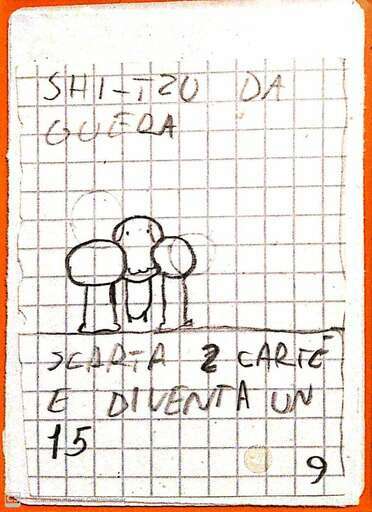 SHI-TZU DA
GUERA
SCARTA 2 CARTE
E DIVENTA UN
15
9